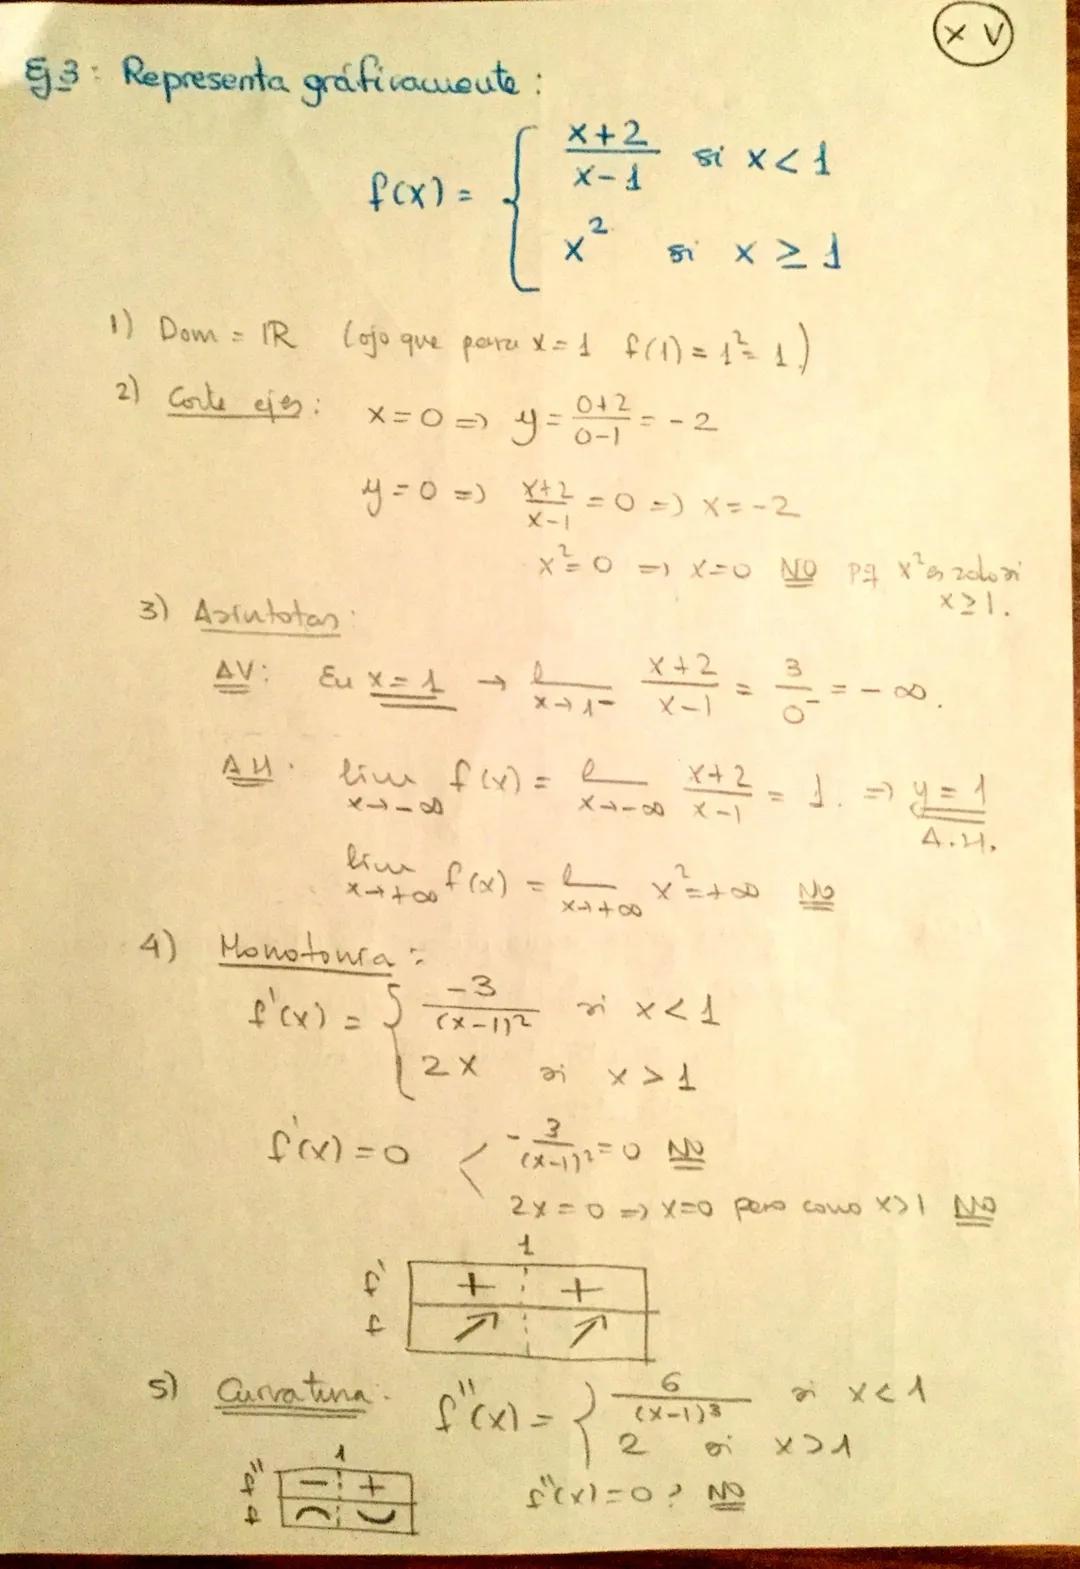 XV
Ej 3: Representa gráficamente:
f(x) = { x+2 / x-1 si x < 1
x² si x ≥ 1
1) Dom = IR (ojo que para x = 1 f(1) = 1² = 1.)
2) Corte ejes: x = 0 => y = 0+2 / 0-1 = -2
y = 0 => x+2 / x-1 = 0 => x = -2
x² = 0 => x = 0 NO pq x² es solo si
x ≥ 1.
3) Asíntotas:
AV: En x = 1 → l x→1⁻ x+2 / x-1 = 3 / 0⁻ = -∞.
AH. lim x→-∞ f(x) = l x→-∞ x+2 / x-1 = 1. => y = 1
A.H.
lim x→+∞ f(x) = l x→+∞ x² = +∞ NO
4) Monotonía:
f'(x) = { -3 / (x-1)² si x < 1
2x si x > 1
f'(x) = 0 < -3 / (x-1)² = 0 NO
2x = 0 => x = 0 pero como x > 1 NO
1
f' + +
f ↗ ↗
5) Curvatura: f''(x) = { 6 / (x-1)³ si x < 1
2 si x > 1
1
f'' - +
f ∩ ∪
f''(x) = 0? NO